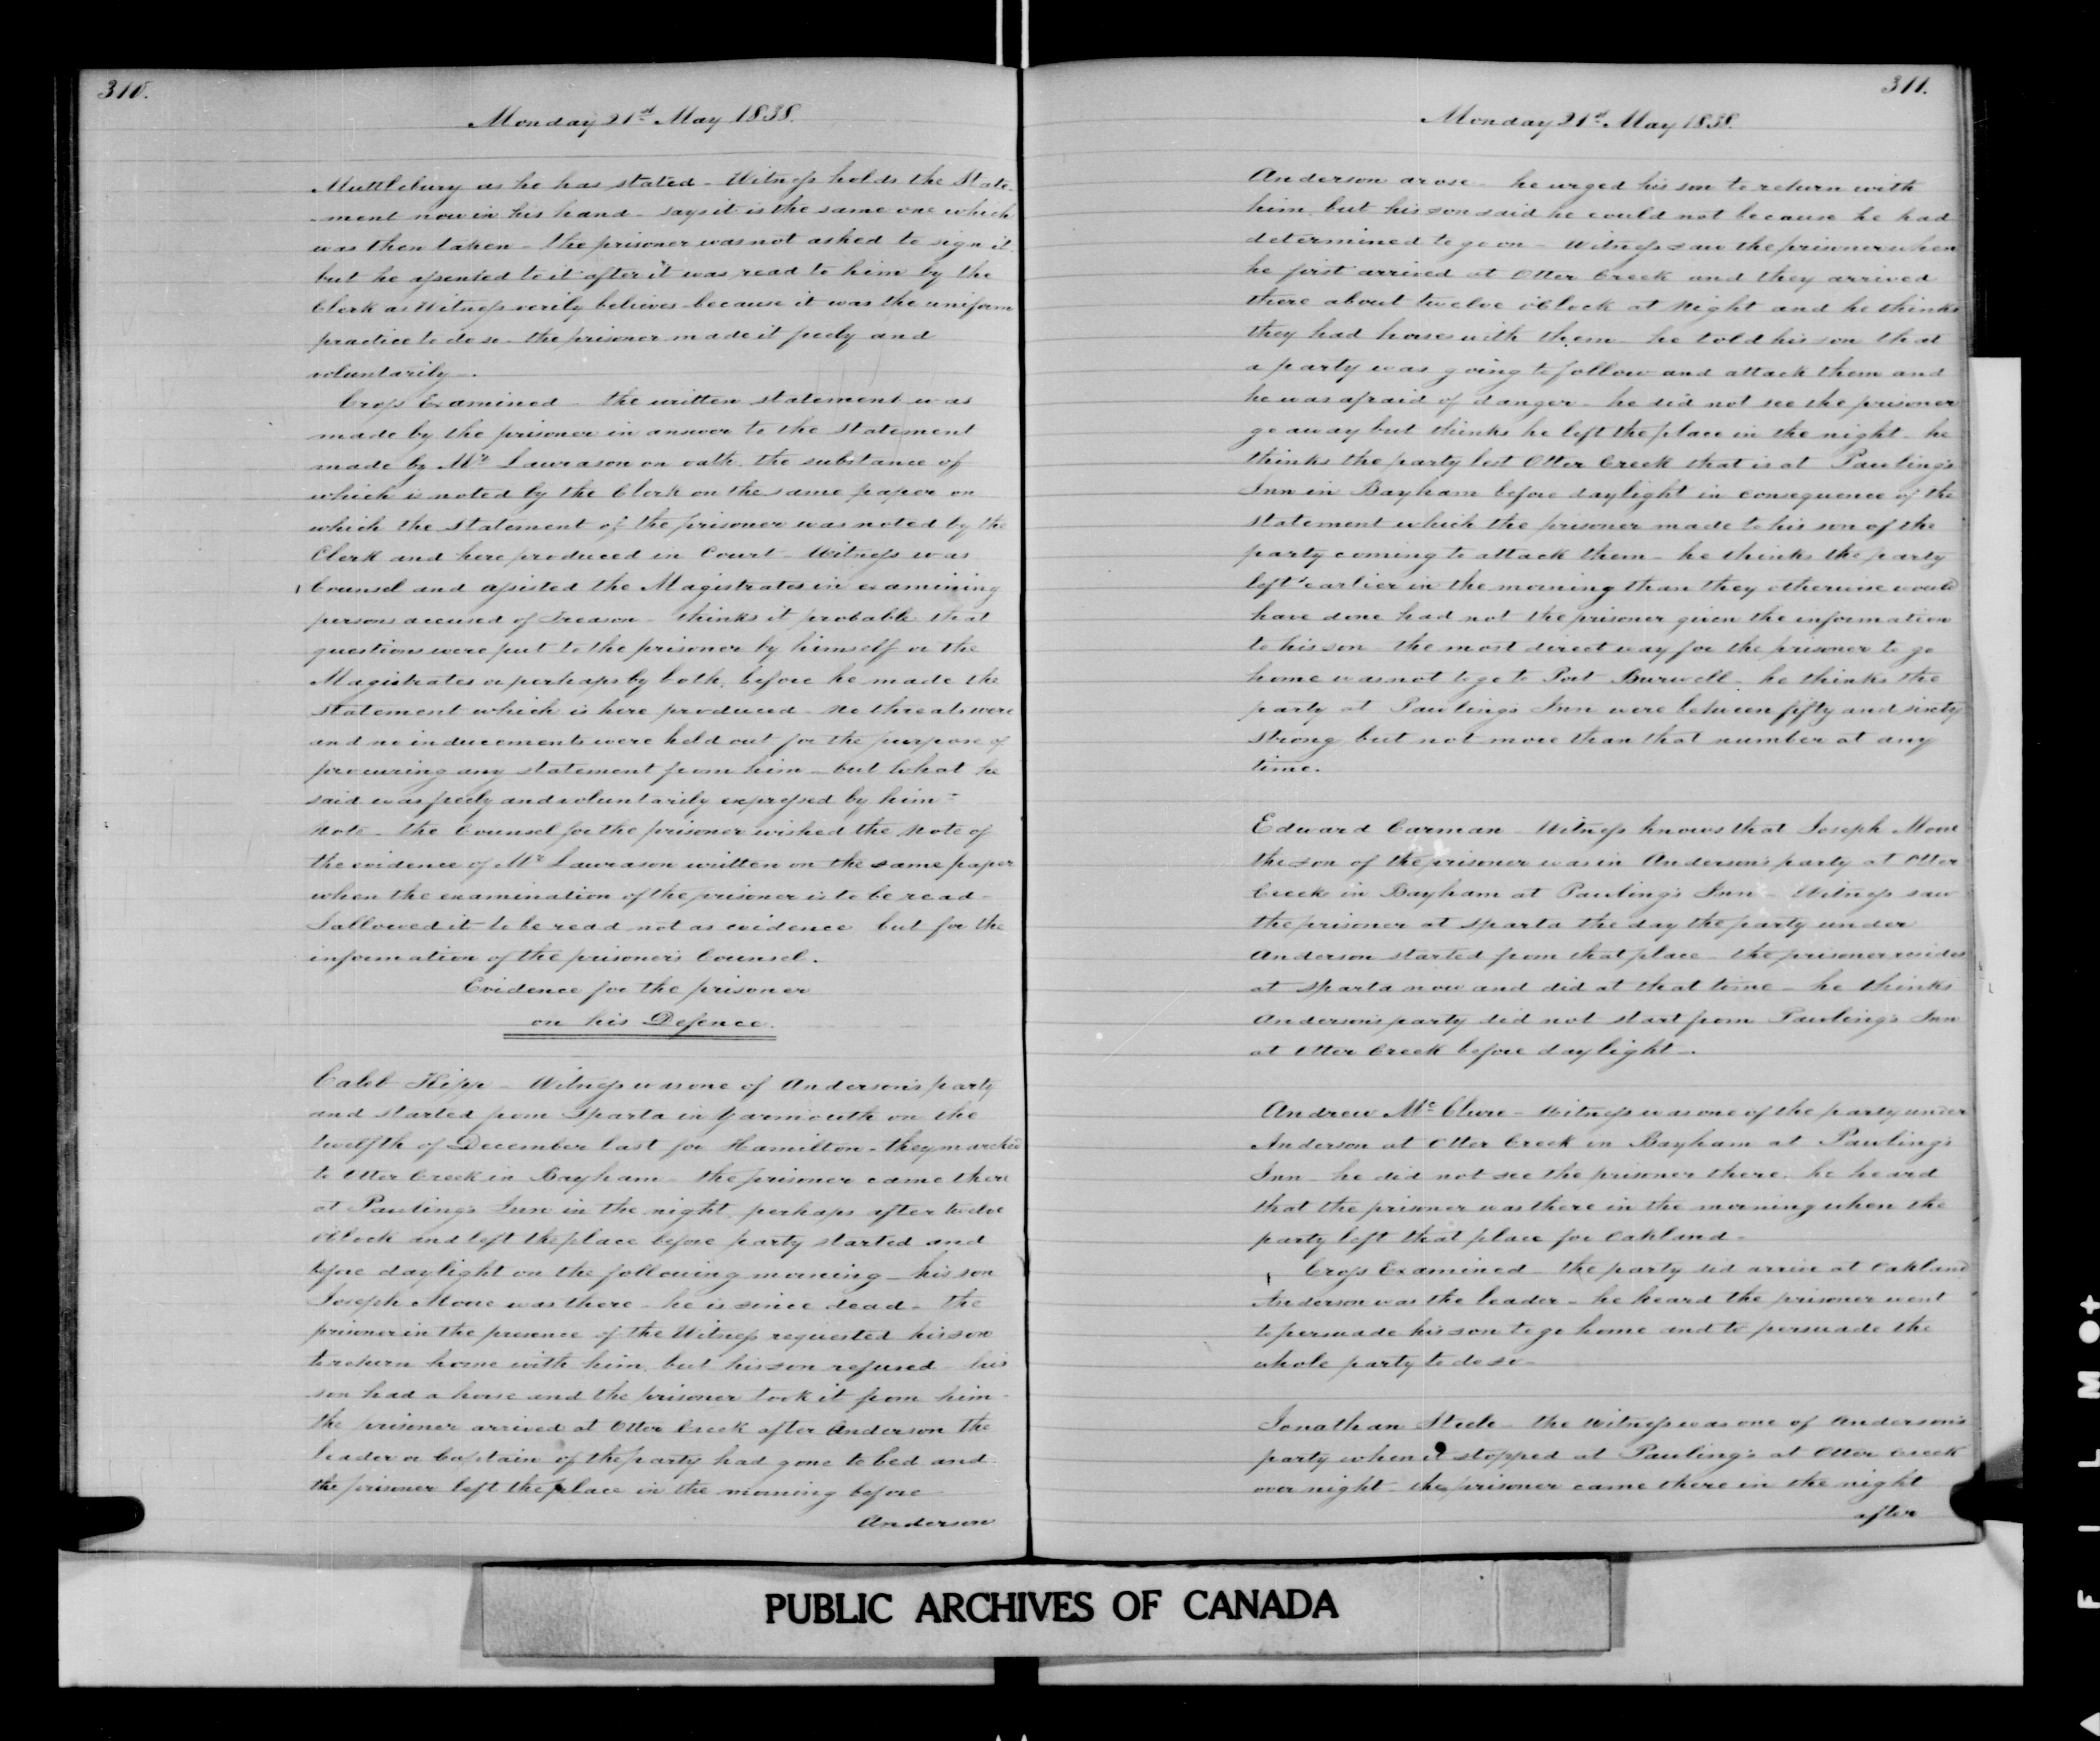 310.
Monday 21st May 1838.
Muttlebury as he has stated - Witness holds the State-
-ment now in his hand - says it is the same one which
was then taken - the prisoner was not asked to sign it
but he assented to it after it was read to him by the
Clerk as Witness verily believes because it was the uniform
practice to do so - the prisoner made it freely and
voluntarily -.
Cross Examined - the written statement was
made by the prisoner in answer to the statement
made by Mr Lawrason on oath, the substance of
which is noted by the Clerk on the same paper on
which the statement of the prisoner was noted by the
Clerk and here produced in Court - Witness was
Counsel and assisted the Magistrates in examining
persons accused of Treason - thinks it probable that
questions were put to the prisoner by himself or the
Magistrates or perhaps by both, before he made the
statement which is here produced - No threats were
and no inducements were held out for the purpose of
procuring any statement from him - but what he
said was freely and voluntarily expressed by him -
Note - the Counsel for the prisoner wished the Note of
the evidence of Mr Lawrason written on the same paper
when the examination of the prisoner is to be read -
I allowed it to be read not as evidence but for the
information of the prisoner's Counsel.
Evidence for the prisoner
on his Defence.
Caleb Kipp - Witness was one of Anderson's party
and started from Sparta in Yarmouth on the
twelfth of December last for Hamilton - they marched
to Otter Creek in Bayham - the prisoner came there
at Pauling's Inn in the night, perhaps after twelve
o'Clock and left the place before party started and
before daylight on the following morning - his son
Joseph Mone was there - he is since dead - the
prisoner in the presence of the Witness requested his son
to return home with him, but his son refused - his
son had a horse and the prisoner took it from him -
the prisoner arrived at Otter Creek after Anderson the
leader or Captain of the party had gone to bed and
the prisoner left the place in the morning before
Anderson
311.
Monday 21st May 1838.
Anderson arose - he urged his son to return with
him, but his son said he could not because he had
determined to go on - Witness saw the prisoner when
he first arrived at Otter Creek and they arrived
there about twelve o'Clock at Night and he thinks
they had horses with them - he told his son that
a party was going to follow and attack them and
he was afraid of danger - he did not see the prisoner
go away but thinks he left the place in the night - he
thinks the party left Otter Creek that is at Pauling's
Inn in Bayham before daylight in consequence of the
statement which the prisoner made to his son of the
party coming to attack them - he thinks the party
left earlier in the morning than they otherwise would
have done had not the prisoner given the information
to his son - the most direct way for the prisoner to go
home was not to go to Port Burwell - he thinks the
party at Pauling's Inn were between fifty and sixty
strong, but not more than that number at any
time.
Edward Carman - Witness knows that Joseph Mone
the son of the prisoner was in Anderson's party at Otter
Creek in Bayham at Pauling's Inn - Witness saw
the prisoner at Sparta the day the party under
Anderson started from that place - the prisoner resides
at Sparta now and did at that time - he thinks
Anderson's party did not start from Pauling's Inn
at Otter Creek before daylight -.
Andrew McClure - Witness was one of the party under
Anderson at Otter Creek in Bayham at Pauling's
Inn - he did not see the prisoner there, he heard
that the prisoner was there in the morning when the
party left that place for Oakland -
Cross Examined - the party did arrive at Oakland
Anderson was the leader - he heard the prisoner went
to persuade his son to go home and to persuade the
whole party to do so -
Jonathan Steele - the Witness was one of Anderson's
party when it stopped at Pauling's at Otter Creek
over night - the prisoner came there in the night
after
PUBLIC ARCHIVES OF CANADA